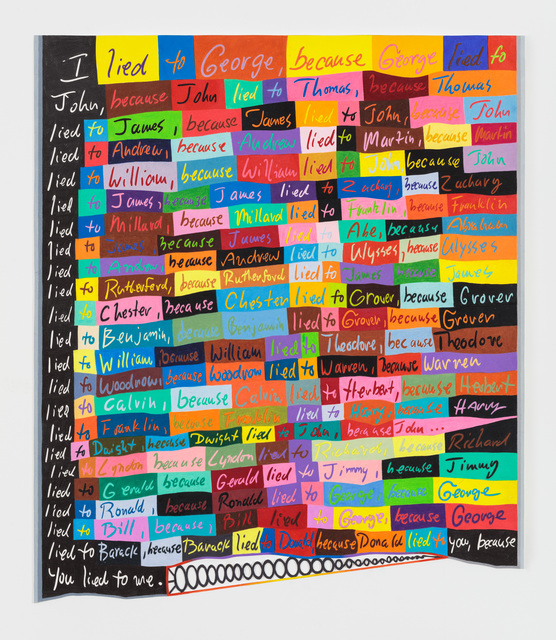 I lied to George, because George lied to
John, because John lied to Thomas, because Thomas
lied to James, because James lied to John, because John
lied to Andrew, because Andrew lied to Martin, because Martin
lied to William, because William lied to John because John
lied to James, because James lied to Zachary, because Zachary
lied to Millard, because Millard lied to Franklin, because Franklin
lied to James because James lied to Abe, because Abraham
lied to Andrew because Andrew lied to Ulysses, because Ulysses
lied to Rutherford, because Rutherford lied to James because James
lied to Chester, because Chester lied to Grover, because Grover
lied to Benjamin, because Benjamin lied to Grover, because Grover
lied to William because William lied to Theodore, because Theodore
lied to Woodrow, because Woodrow lied to Warren, because Warren
lied to Calvin, because Calvin lied to Herbert, because Herbert
lied to Franklin, because Franklin lied to Harry because Harry
lied to Dwight, because Dwight lied to John, because John ...
lied to Lyndon because Lyndon lied to Richard, because Richard
lied to Gerald because Gerald lied to Jimmy, because Jimmy
lied to Ronald, because Ronald lied to George, because George
lied to Bill, because, Bill lied to George, because George
lied to Barack, because Barack lied to Donald because Donald lied to you, because
you lied to me.